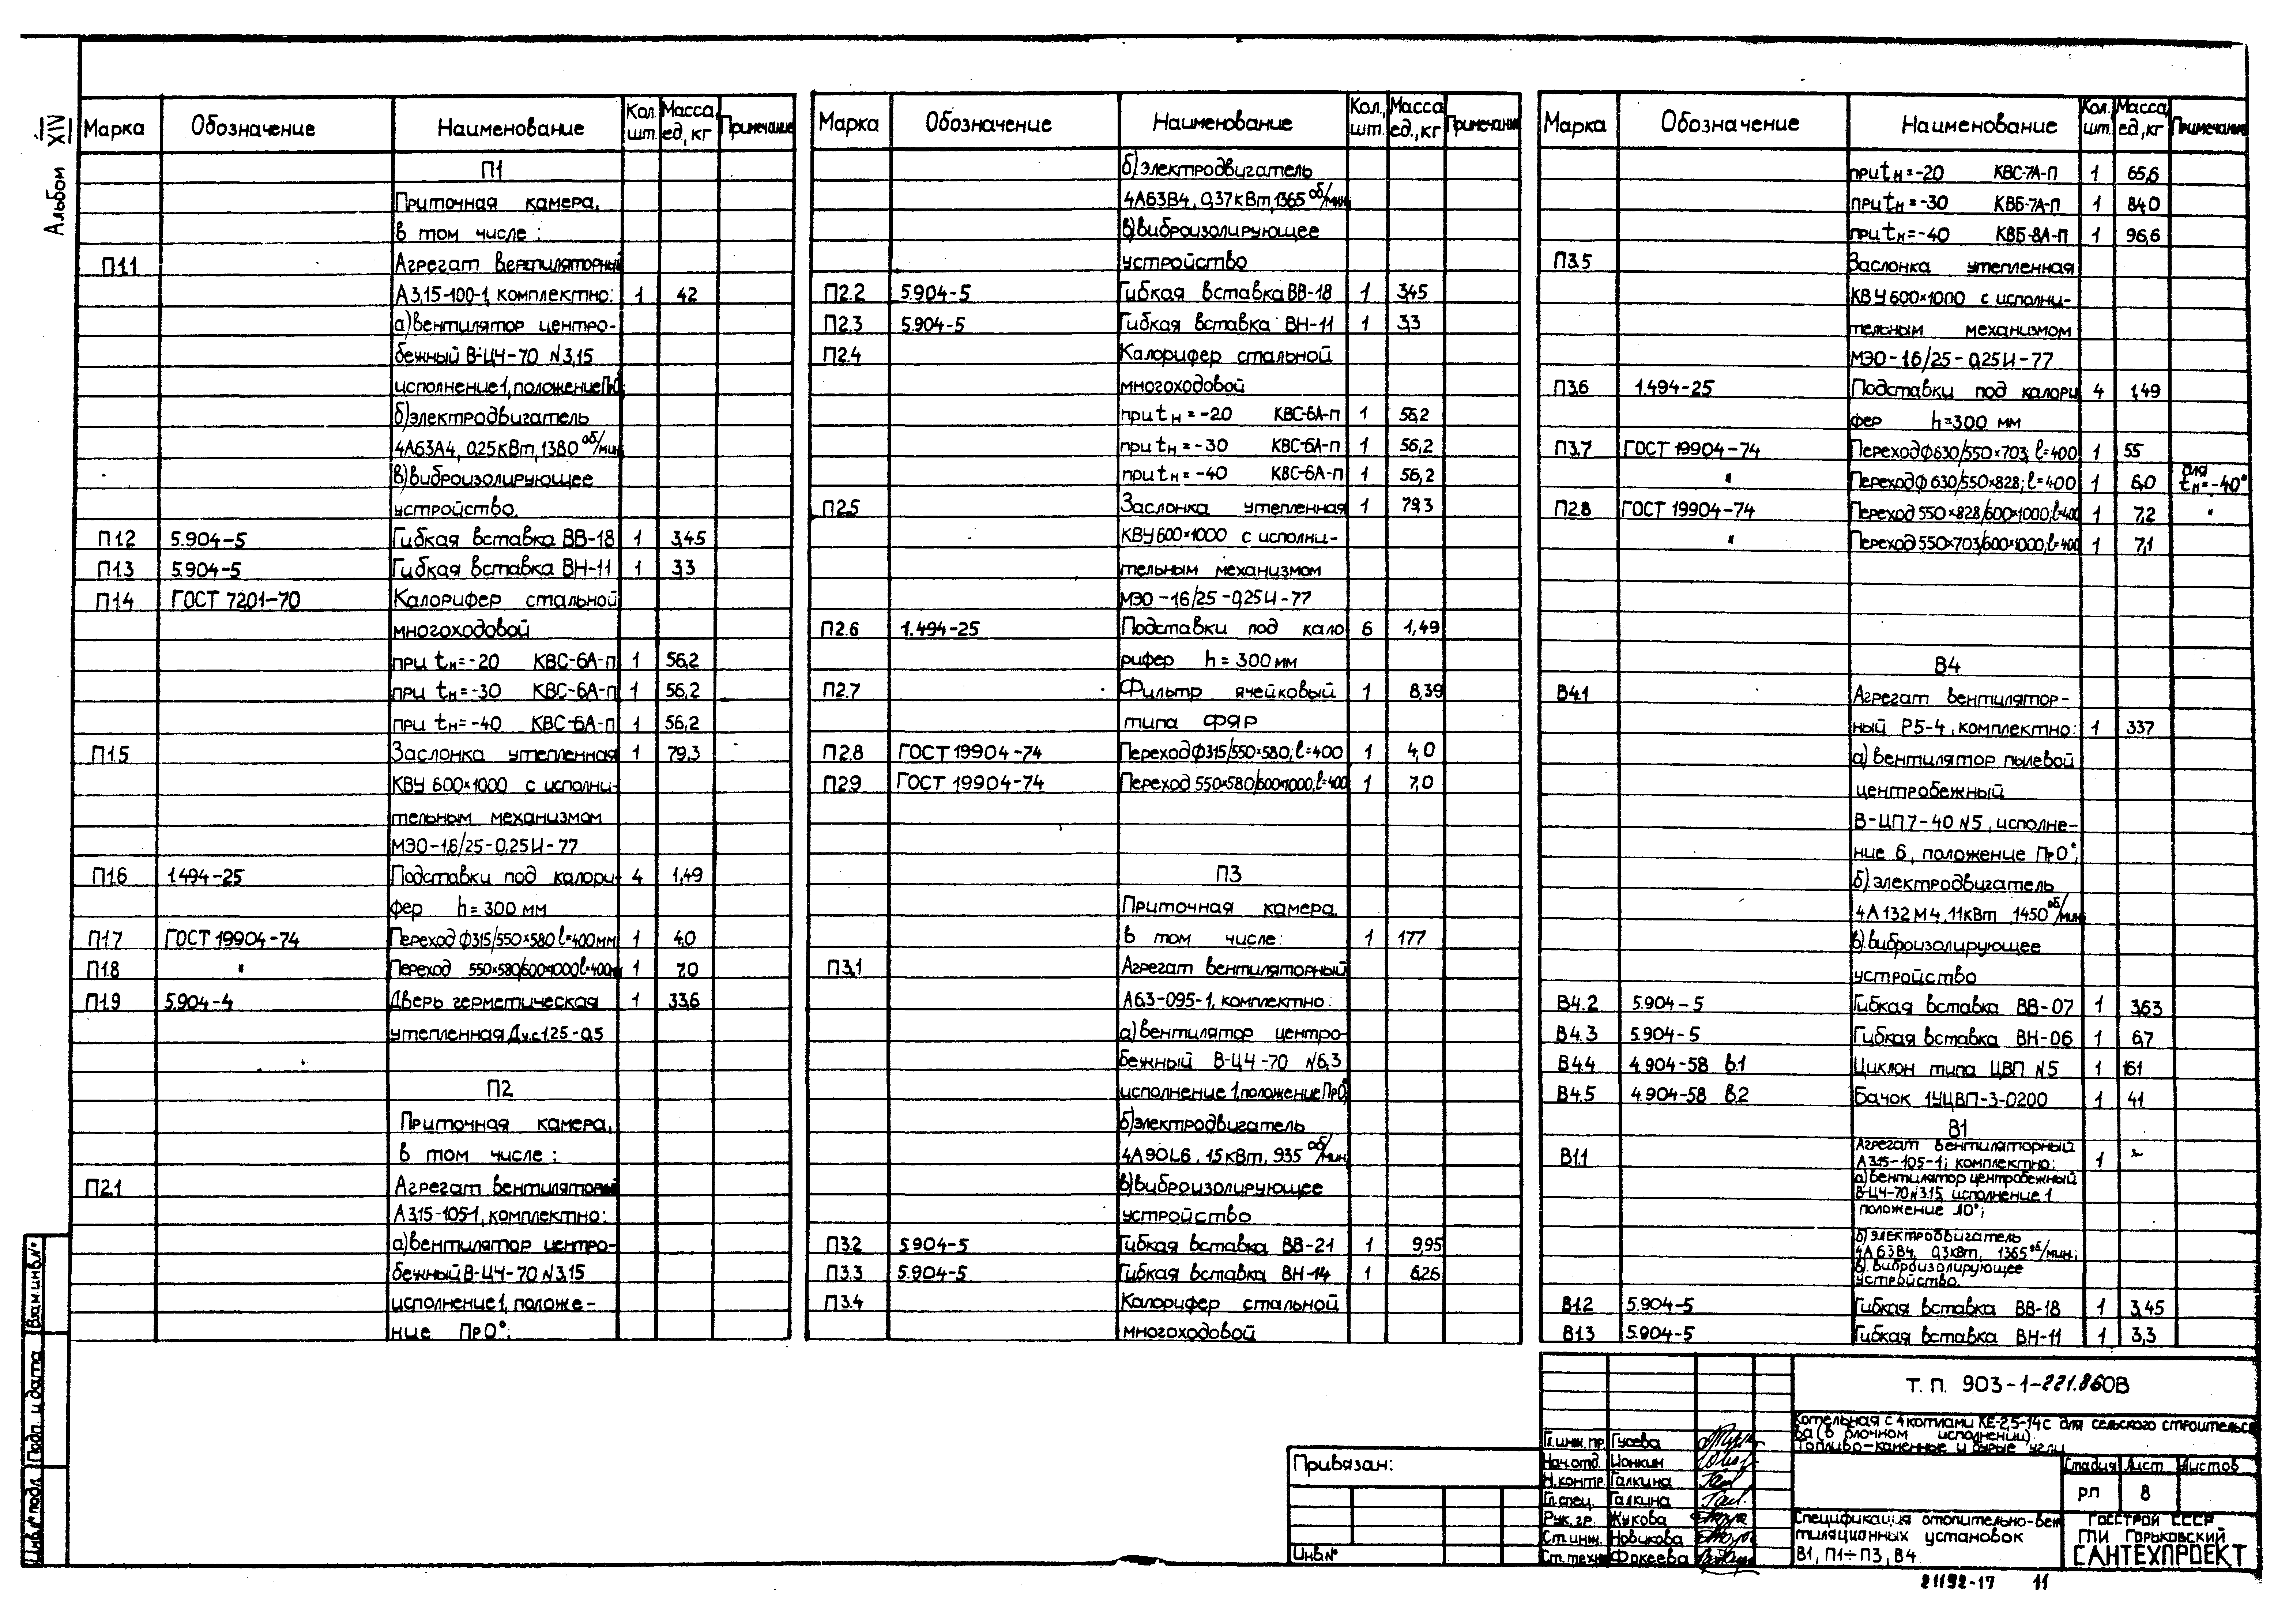 Альбом XIV
Марка Обозначение Наименование Кол. шт. Масса, ед, кг Примечание
П1
Приточная камера,
в том числе:
П1.1 Агрегат вентиляторный
А3,15-100-1, комплектно: 1 42
а) вентилятор центро-
бежный В-Ц4-70 N3,15
исполнение 1, положение Пр0°
б) электродвигатель
4А63А4, 0,25кВт, 1380 об/мин
в) виброизолирующее
устройство.
П1.2 5.904-5 Гибкая вставка ВВ-18 1 3,45
П1.3 5.904-5 Гибкая вставка ВН-11 1 3,3
П1.4 ГОСТ 7201-70 Калорифер стальной
многоходовой
при tн=-20 КВС-6А-п 1 56,2
при tн=-30 КВС-6А-п 1 56,2
при tн=-40 КВС-6А-п 1 56,2
П1.5 Заслонка утепленная 1 79,3
КВУ 600×1000 с исполни-
тельным механизмом
МЭО-1,6/25-0,25И-77
П1.6 1.494-25 Подставки под калори- 4 1,49
фер h=300 мм
П1.7 ГОСТ 19904-74 Переход ф315/550×580 l=400мм 1 4,0
П1.8 " Переход 550×580/600×1000 l=400м 1 7,0
П1.9 5.904-4 Дверь герметическая 1 33,6
утепленная Ду.с.1.25-0,5
П2
Приточная камера,
в том числе:
П2.1 Агрегат вентиляторный
А3,15-105-1, комплектно:
а) вентилятор центро-
бежный В-Ц4-70 N3,15
исполнение 1, положе-
ние Пр0°;
Марка Обозначение Наименование Кол., шт. Масса ед., кг Примечание
б) электродвигатель
4А63В4, 0,37кВт, 1365 об/мин
в) виброизолирующее
устройство
П2.2 5.904-5 Гибкая вставка ВВ-18 1 3,45
П2.3 5.904-5 Гибкая вставка ВН-11 1 3,3
П2.4 Калорифер стальной
многоходовой
при tн=-20 КВС-6А-п 1 56,2
при tн=-30 КВС-6А-п 1 56,2
при tн=-40 КВС-6А-п 1 56,2
П2.5 Заслонка утепленная 1 79,3
КВУ 600×1000 с исполни-
тельным механизмом
МЭО-1,6/25-0,25И-77
П2.6 1.494-25 Подставки под кало 6 1,49
рифер h=300 мм
П2.7 Фильтр ячейковый 1 8,39
типа ФЯР
П2.8 ГОСТ 19904-74 Переход ф315/550×580; l=400 1 4,0
П2.9 ГОСТ 19904-74 Переход 550×580/600×1000, l=400 1 7,0
П3
Приточная камера,
в том числе: 1 177
П3.1 Агрегат вентиляторный
А6,3-095-1, комплектно:
а) вентилятор центро-
бежный В-Ц4-70 N6,3
исполнение 1, положение Пр0°
б) электродвигатель
4А90L6, 1,5кВт, 935 об/мин
в) виброизолирующее
устройство
П3.2 5.904-5 Гибкая вставка ВВ-21 1 9,95
П3.3 5.904-5 Гибкая вставка ВН-14 1 6,26
П3.4 Калорифер стальной
многоходовой
Марка Обозначение Наименование Кол. шт. Масса, ед, кг Примечание
при tн=-20 КВС-7А-П 1 65,6
при tн=-30 КВБ-7А-П 1 84,0
при tн=-40 КВБ-8А-П 1 96,6
П3.5 Заслонка утепленная
КВУ 600×1000 с исполни-
тельным механизмом
МЭО-1,6/25-0,25И-77
П3.6 1.494-25 Подставки под калори 4 1,49
фер h=300 мм
П3.7 ГОСТ 19904-74 Переход ф630/550×703; l=400 1 5,5
" Переход ф630/550×828; l=400 1 6,0 для tн=-40°
П2.8 ГОСТ 19904-74 Переход 550×828/600×1000; l=400 1 7,2 "
" Переход 550×703/600×1000, l=400 1 7,1
В4
В4.1 Агрегат вентилятор-
ный Р5-4, комплектно: 1 337
а) вентилятор пылевой
центробежный
В-ЦП7-40 N5, исполне-
ние 6, положение Пр0°;
б) электродвигатель
4А132М4, 11кВт 1450 об/мин
в) виброизолирующее
устройство
В4.2 5.904-5 Гибкая вставка ВВ-07 1 3,63
В4.3 5.904-5 Гибкая вставка ВН-06 1 6,7
В4.4 4.904-58 в.1 Циклон типа ЦВП N5 1 161
В4.5 4.904-58 в.2 Бачок 1УЦВП-3-0200 1 41
В1
Агрегат вентиляторный
В1.1 А3,15-105-1; комплектно: 1
а) вентилятор центробежный
В-Ц4-70 N3,15, исполнение 1
положение Л0°;
б) электродвигатель
4А63В4, 0,3кВт, 1365 об/мин;
в) виброизолирующее
устройство.
В1.2 5.904-5 Гибкая вставка ВВ-18 1 3,45
В1.3 5.904-5 Гибкая вставка ВН-11 1 3,3
Т. П. 903-1-221.86ОВ
Котельная с 4 котлами КЕ-2,5-14с для сельского строительст
ва (в блочном исполнении)
Топливо-каменные и бурые угли
Гл.инж.пр. Гусева
Нач.отд. Ионкин
Н.контр. Галкина
Гл.спец. Галкина
Рук.гр. Жукова
Ст.инж. Новикова
Ст.техн. Фокеева
Стадия Лист Листов
рп 8
Спецификация отопительно-вен
тиляционных установок
В1, П1÷П3, В4.
ГОССТРОЙ СССР
ГПИ Горьковский
САНТЕХПРОЕКТ
Привязан:
Инв.№
Взам.инв.№
Подп. и дата
Инв.№ подл.
21192-17 11